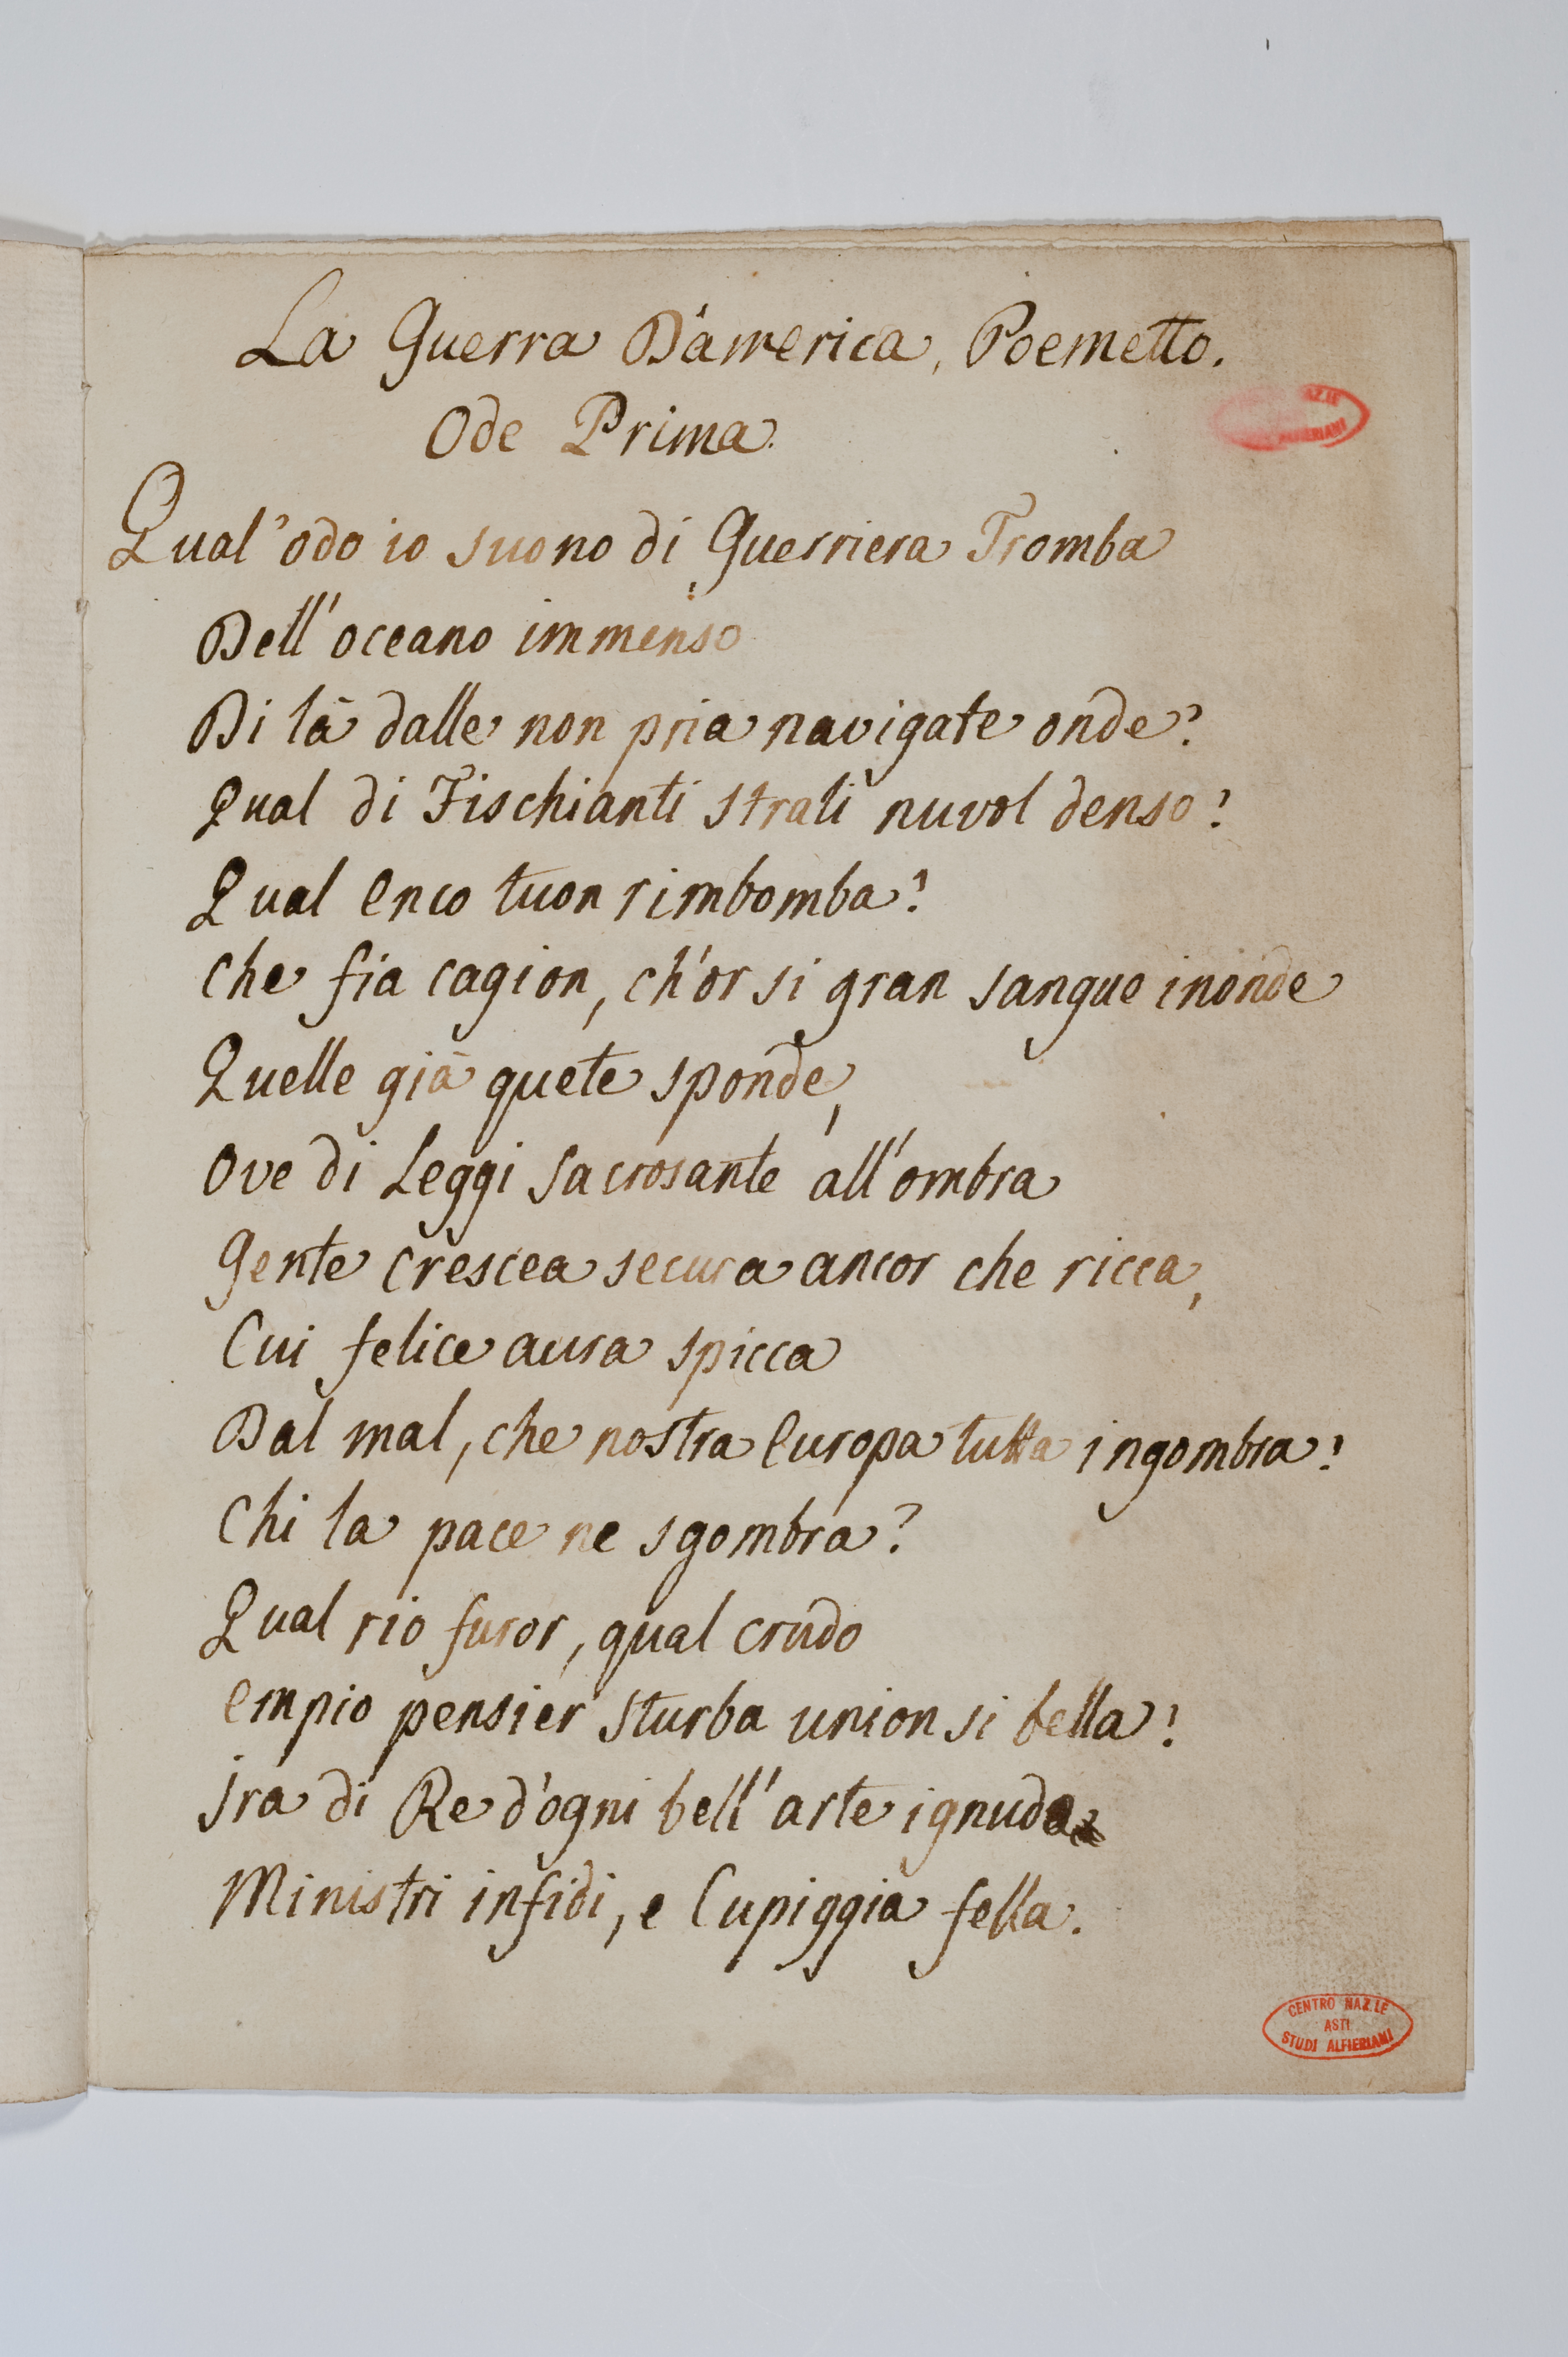 La Guerra D'america, Poemetto.
Ode Prima.
Qual' odo io suono di Guerriera Tromba
Dell' oceano immenso
Di là dalle non pria navigate onde?
Qual di Fischianti strali nuvol denso?
Qual Eneo tuon rimbomba?
Che fia cagion, ch'or si gran sangue inonde
Quelle già quete sponde,
Ove di Leggi sacrosante all' ombra
Gente crescea secura ancor che ricca,
Cui felice aura spicca
Dal mal, che nostra Europa tutta ingombra?
Chi la pace ne sgombra?
Qual rio furor, qual crudo
Empio pensier sturba union si bella?
Ira di Re d'ogni bell' arte ignudo
Ministri infidi, e Cupiggia fella.
AZ.LE
ALFIERIANI
CENTRO NAZ.LE
ASTI
STUDI ALFIERIANI